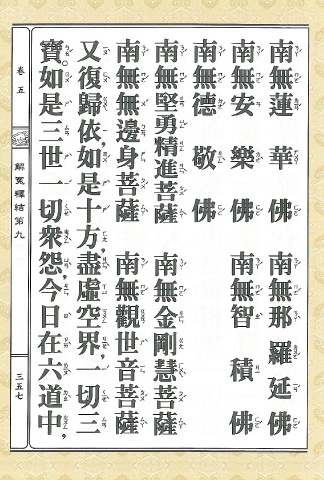 南無蓮華佛　南無那羅延佛
南無安樂佛　南無智積佛
南無德敬佛
南無堅勇精進菩薩　南無金剛慧菩薩
南無無邊身菩薩　南無觀世音菩薩
又復歸依，如是十方，盡虛空界，一切三
寶。如是三世一切衆怨，今日在六道中，
卷五
解冤釋結第九
三五七